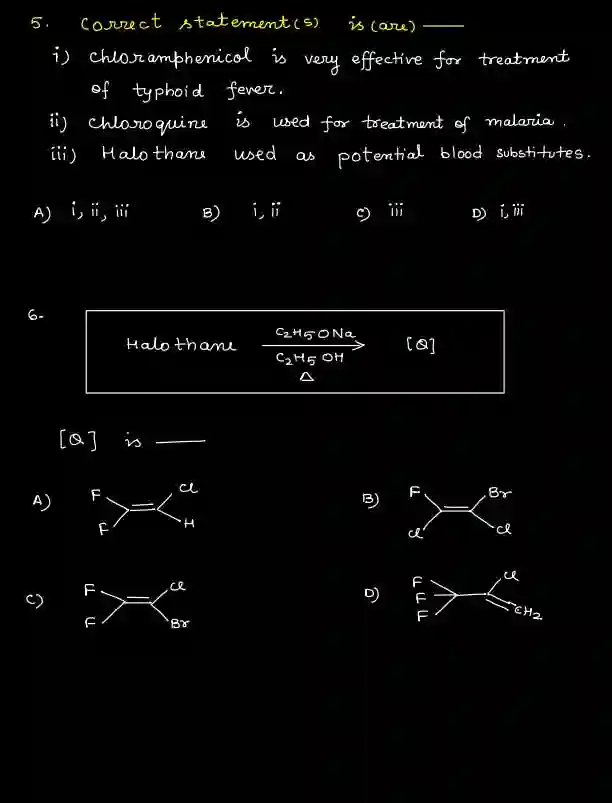 5. Correct statement(s) is (are) ——
i) chloramphenicol is very effective for treatment
of typhoid fever.
ii) chloroquine is used for treatment of malaria.
iii) Halothane used as potential blood substitutes.
A) i, ii, iii B) i, ii C) iii D) i, iii
6-
Halothane C2H5ONa [Q]
C2H5OH
Δ
[Q] is ——
A) F Cl F H
B) F Br Cl Cl
C) F Cl F Br
D) F F F Cl CH2